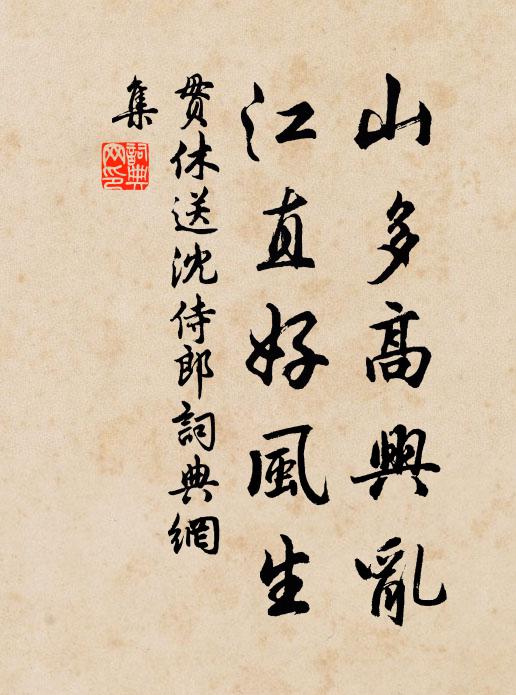 山多高興亂
江直好風生
貫休送沈侍郎詞典網
集
詞典
网印